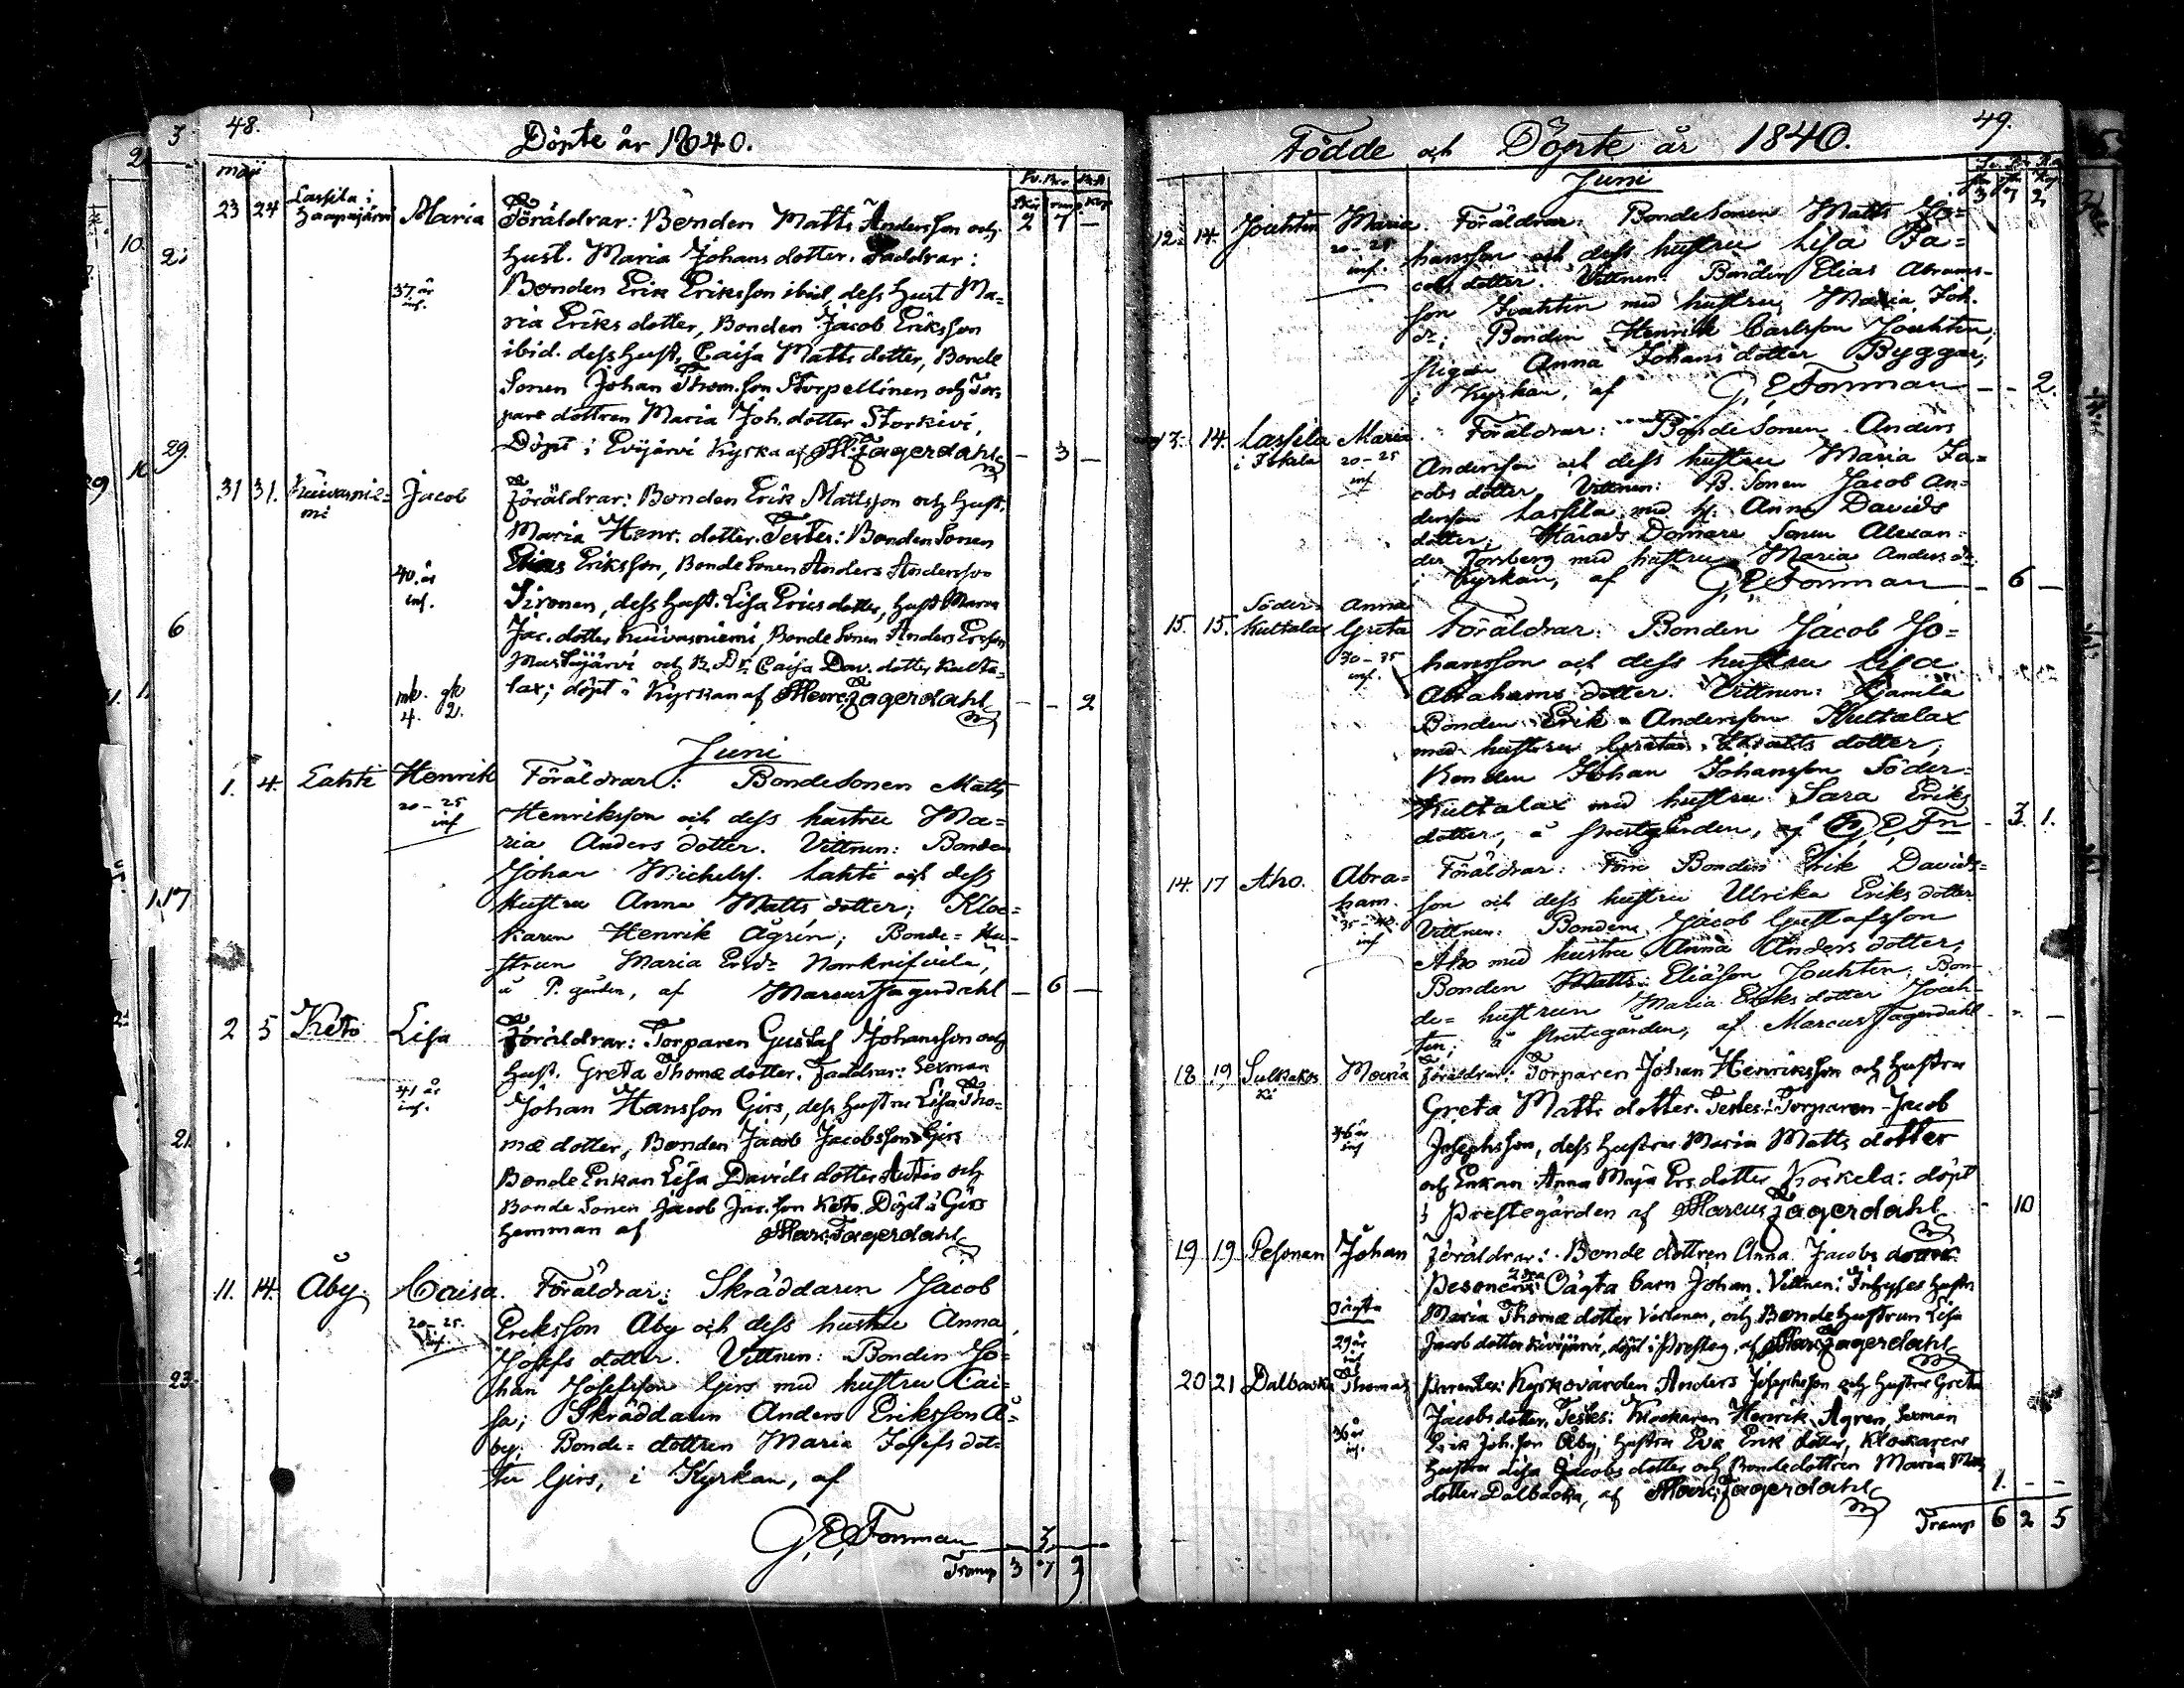 48.
Döpte år 1840.
maji
23 24 Lassila i Haapajärvi Maria Föräldrar: Bonden Matts Andersson och 2 7 –
Hust. Maria Johans dotter. Faddrar:
37 år inf. Bonden Erik Eriksson ibid, dess Hust Ma=
ria Eriks dotter, Bonden Jacob Eriksson
ibid. dess Hust. Caisa Matts dotter, Bonde
Sonen Johan Thom. Son Storpellinen och Tor-
pare dottren Maria Joh. dotter Storkivi,
Döpt i Evijärvi Kyrka af M. Fagerdahl – 3 –
31 31. Jacob Föräldrar: Bonden Erik Mattsson och Hust.
Maria Henr. dotter. Testes: Bonden Sonen
40. år inf. Elias Eriksson, Bonde Sonen Anders Andersson
dess Hust. Lisa Erics dotter, Hust. Maria
Jac. dotter Bonde Sonen Anders Ersson
och B. Dr. Caisa Dav. dotter Kulta-
mk. gk 4. 2. lax; döpt i Kyrkan af Marc. Fagerdahl – – 2
Juni
1. 4. Lahti Henrik Föräldrar: Bondesonen Matts
20–25 inf Henriksson och dess hustru Ma=
ria Anders dotter. Vittnen: Bonden
Johan Michelss. Lahti och dess
Hustru Anna Matts dotter; Kloc=
karen Henrik Ågrén; Bonde=Hu-
strun Maria Ersdr
å P. gården, af Marcus Fagerdahl – 6 –
2 5 Keto Lisa Föräldrar: Torparen Gustaf Johansson och
Hust. Greta Thomæ dotter. Faddrar: Sexman
41 år inf. Johan Hansson Girs, dess Hustru Lisa Tho-
mæ dotter, Bonden Jacob Jacobsson Girs
Bonde Enkan Lisa Davids dotter Autio och
Bonde Sonen Jacob Jac. Son Keto. Döpt i Girs
Hemman af Marc. Fagerdahl
11. 14. Åby. Caisa. Föräldrar: Skräddaren Jacob
20–25. inf. Eriksson Åby och dess hustru Anna
Josefs dotter. Vittnen: Bonden Jo=
han Josefsson Girs med hustru Cai=
sa; Skräddaren Anders Eriksson Å=
by; Bonde=dottren Maria Josefs dot=
ter Girs, i Kyrkan, af
G. E. Forsman 3.
Transp 3 7
49.
Födde och Döpte år 1840.
Juni
12. 14. Jouhten Maria. Föräldrar: Bondesonen Matts Jo=
20–25 inf. hansson och dess hustru Lisa Ja=
cobs dotter. Vittnen: Bonden Elias Abrams-
son Jouhten med hustru Maria Joh.
dr; Bonden Henrik Carlsson Jouhten;
Pigan Anna Johans dotter Byggar;
i Kyrkan, af G. E. Forsman – – 2.
13. 14. Lassila i Maria Föräldrar: Bonde Sonen Anders
20–25 inf Andersson och dess hustru Maria Ja=
cobs dotter. Vittnen: B. Sonen Jacob An=
dersson Lassila med h. Anna Davids
dotter; Härads Domare Sonen Alexan=
der Forsberg med hustru Maria Anders dr
i Kyrkan, af G. E. Forsman – 6 –
15. 15. Söder Kultalax Anna Greta Föräldrar: Bonden Jacob Jo=
30–35 inf. hansson och dess hustru Lisa
Abrahams dotter. Vittnen: Gamla
Bonden Erik Andersson Kultalax
med hustru Greta dotter;
Bonden Johan Johansson Söder=
Kultalax med hustru Sara Eriks
dotter, å Prestgården, af G. E. Fn – 3. 1.
14. 17 Aho. Abra=ham. Föräldrar: Förre Bonden Erik Davids=
35–40 inf son och dess hustru Ulrika Eriks dotter
Vittnen: Bonden Jacob Gustafsson
Aho med hustru Anna Anders dotter;
Bonden Matts Eliasson Jouhten; Bon-
de=hustrun Maria Eriks dotter Jouh-
ten; å Prestegården, af Marcus Fagerdahl – – –
18 19 Sulkakoski Maria Föräldrar: Torparen Johan Henriksson och Hustru
Greta Matts dotter. Testes: Torparen Jacob
36 år inf Josephsson, dess Hustru Maria Matts dotter
och Enkan Anna Maja Ers dotter Koskela: döpt
i Prestegården af Marcus Fagerdahl – 10
19 19 Pesonen Johan Föräldrar: Bonde dottren Anna Jacobs dotter
Pesonens Oägta barn Johan. Vittnen: Inhyses Hustru
oägta Maria Thomæ dotter och Bonde Hustrun Lisa
29 år inf Jacobs dotter Kivijärvi, döpt i Presteg. af Marc. Fagerdahl
20 21 Dalbacka Thomas Parentes: Kyrkovärden Anders Josephsson och Hustru Greta
Jacobs dotter, Testes: Klockaren Henrik Ågren, Sexman
36 år inf. Erik Joh. Son Åby; Hustru Eva Erik dotter, Klockarens
Hustru Lisa Jacobs dotter och Bondedottren Maria
dotter Dalbacka, af Marc. Fagerdahl 1. – –
Transp 6 2 5